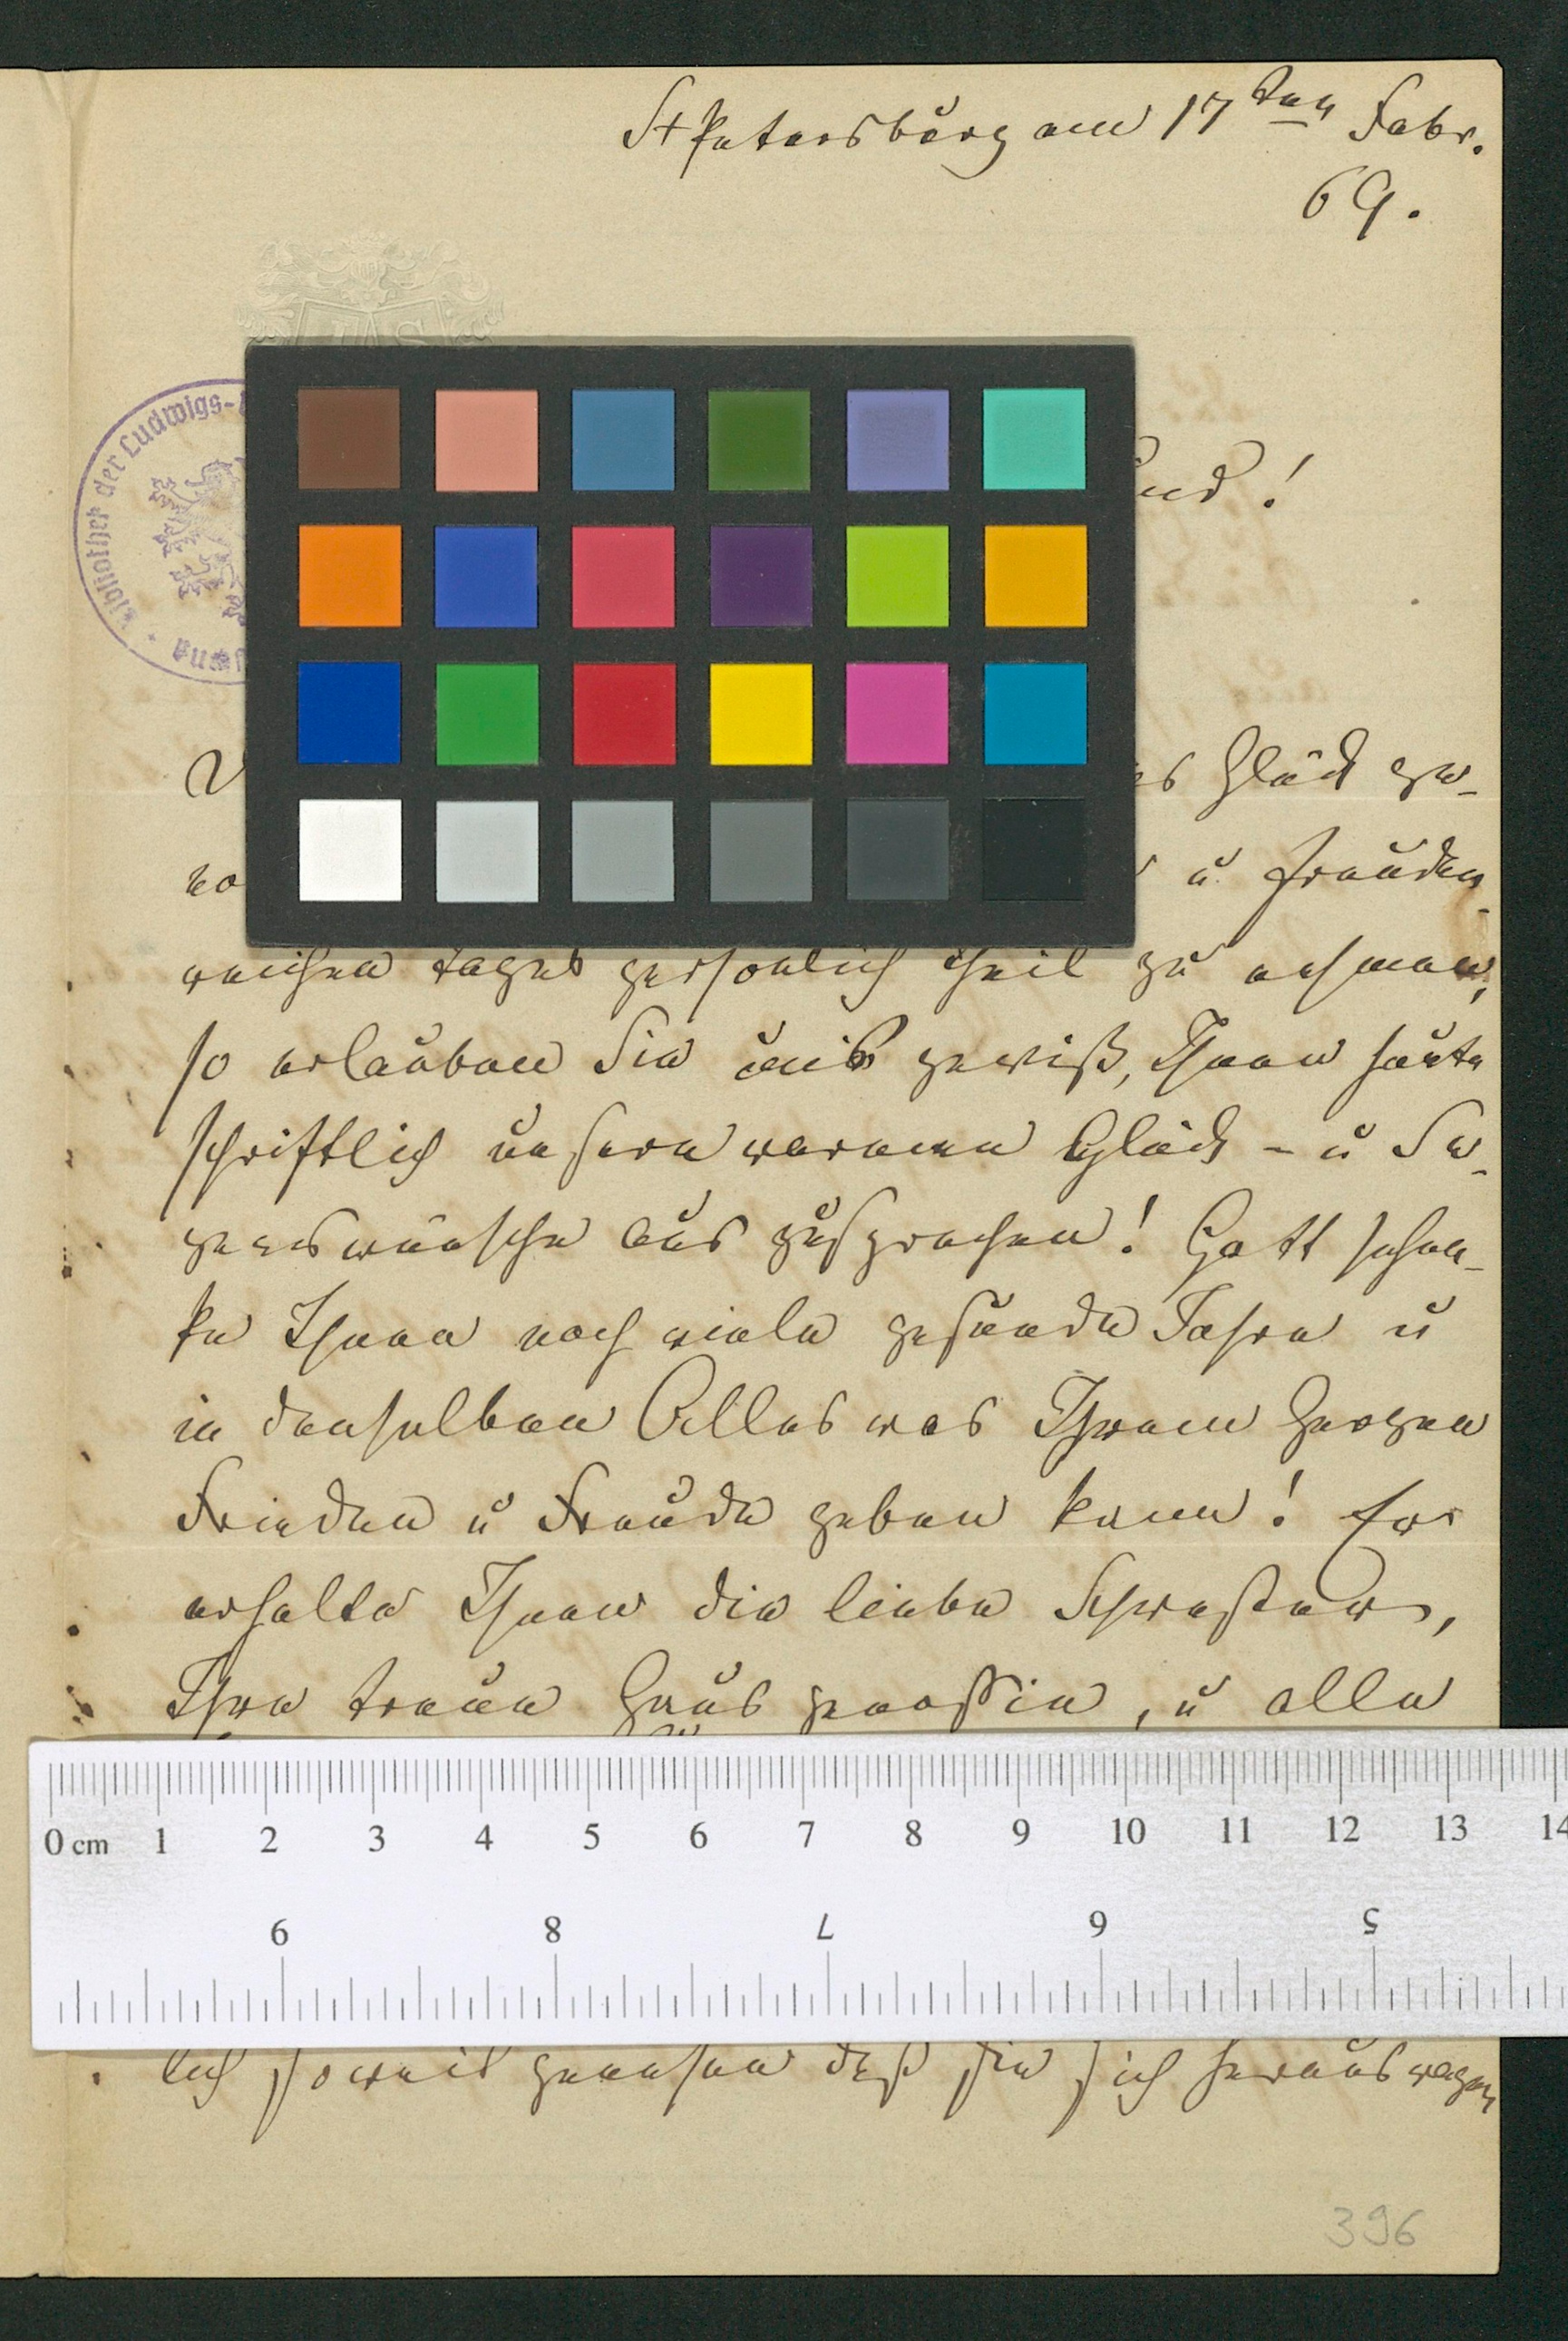 St Petersburg am 17ten Febr.
69.
Bibliothek der Ludwigs-
!
es Glück ge-
u Freuden
reichen Tages persönlich theil zu nehmen,
so erlauben Sie mir gewiß, Ihnen heute
schriftlich unsere warmen Glück- u Se-
genswünsche auszusprechen! Gott schen-
ke Ihnen noch viele gesunde Jahre u
in denselben Alles was Ihrem Herzen
Frieden u Freude geben kann! Er
erhalte Ihnen die liebe Schwester,
Ihre treue Hausgenossin, u alle
0 cm 1 2 3 4 5 6 7 8 9 10 11 12 13 14
9 8 7 6 5
lich soweit genesen daß sie sich herauswagen
396